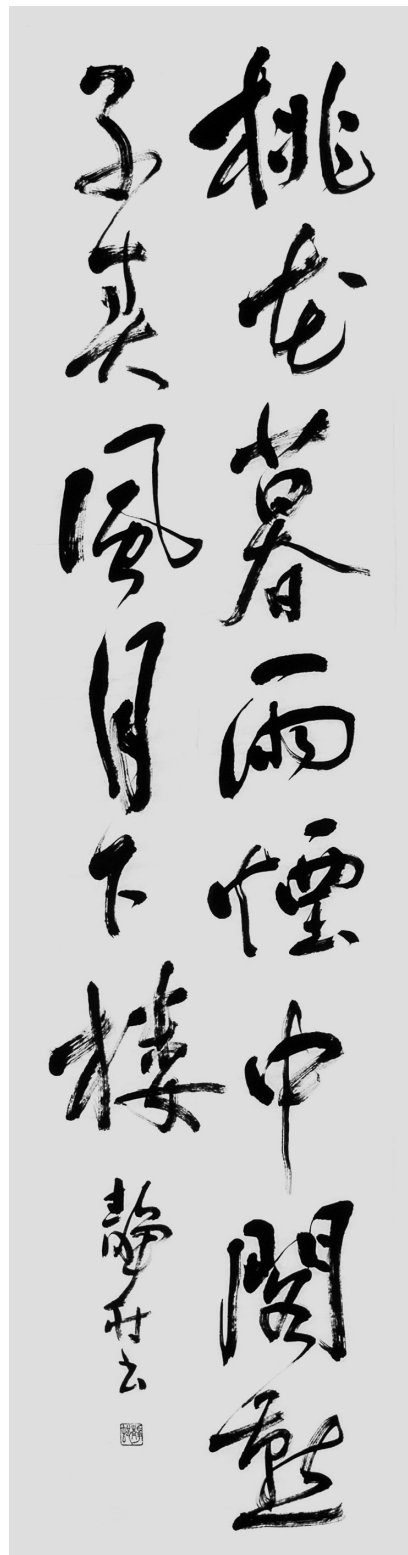 桃花暮雨煙中閣燕
子春風月下樓
靜村書